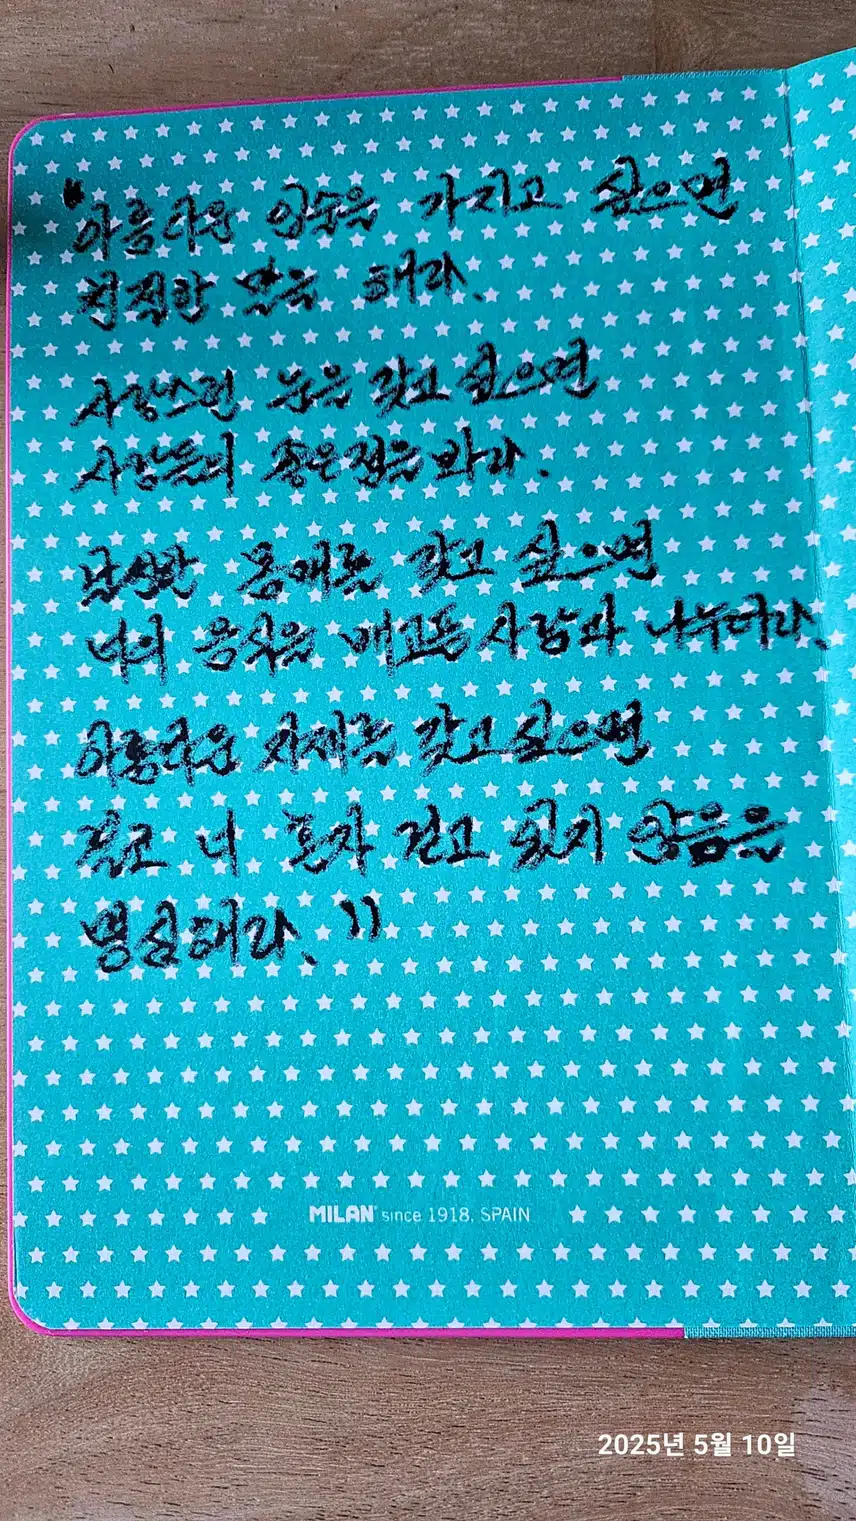 "아름다운 입술을 가지고 싶으면
친절한 말을 해라.
사랑스런 눈을 갖고 싶으면
사람들의 좋은점을 봐라.
날씬한 몸매를 갖고 싶으면
너의 음식을 배고픈 사람과 나누어라.
아름다운 자세를 갖고 싶으면
결코 너 혼자 걷고 있지 않음을
명심해라."
MILAN since 1918. SPAIN
2025년 5월 10일